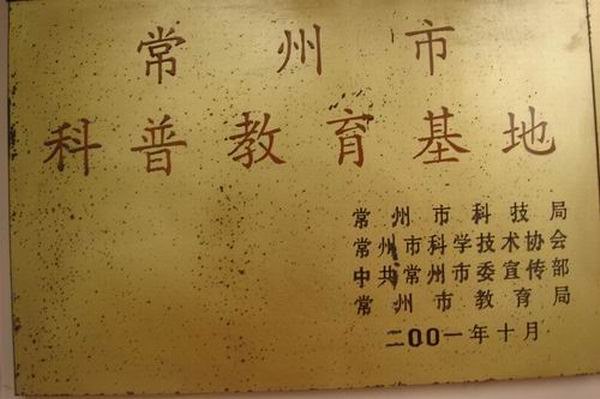 常州市
科普教育基地
常州市科技局
常州市科学技术协会
中共常州市委宣传部
常州市教育局
二00一年十月